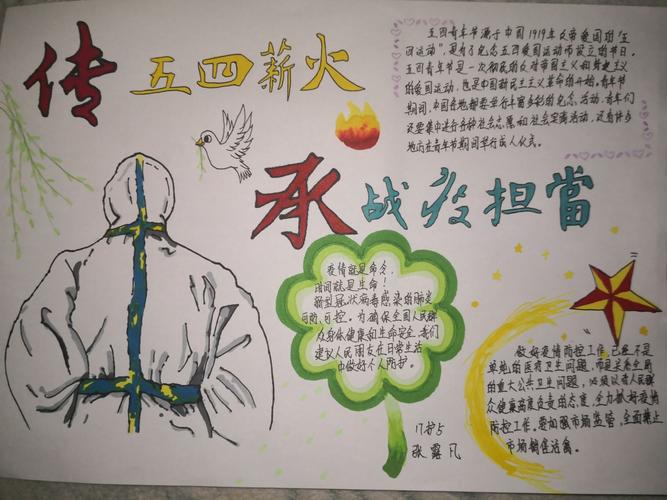 传 五四薪火
承 战疫担當
五四青年节源于中国1919年反帝爱国的"五
四运动",是为了纪念五四爱国运动而设立的节日。
五四青年节是一次彻底的反对帝国主义和封建主义
的爱国运动,也是中国新民主主义革命的开始。青年节
期间,中国各地都要举行丰富多彩的纪念活动,青年们
还要集中进行各种社会志愿和社会实践活动,还有许多
地方在青年节期间举行成人仪式。
疫情就是命令,
时间就是生命!
新型冠状病毒感染的肺炎
可防、可控。为确保全国人民群
众身体健康和生命安全,我们
建议人民朋友在日常生活
中做好个人防护。
17护5
张露凡
做好疫情防控工作,已经不是
单纯的医药卫生问题,而是关系全局
的重大公共卫生问题,必须以者人民群
众健康高度负责的态度,全力抓好疫情
防控工作。要加强市场监管,全面禁止
市场销售活禽。